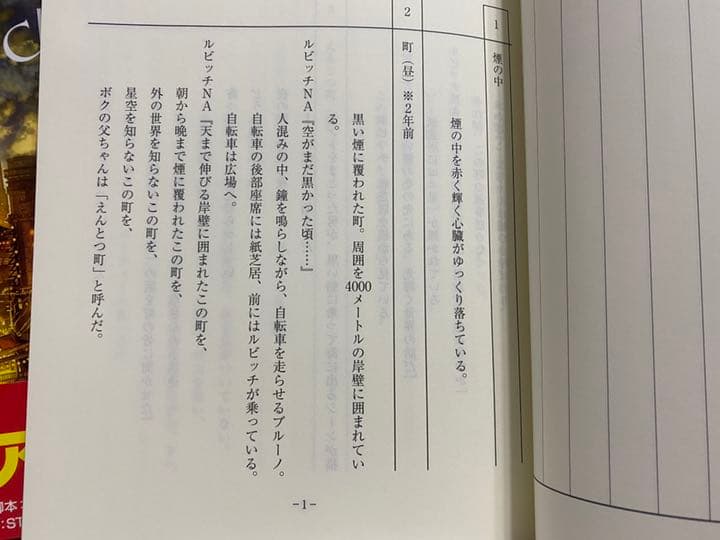 1 煙の中
煙の中を赤く輝く心臓がゆっくり落ちている。
2 町(昼)※2年前
黒い煙に覆われた町。周囲を4000メートルの岸壁に囲まれてい
る。
ルビッチNA『空がまだ黒かった頃……』
人混みの中、鐘を鳴らしながら、自転車を走らせるブルーノ。
自転車の後部座席には紙芝居、前にはルビッチが乗っている。
自転車は広場へ。
ルビッチNA『天まで伸びる岸壁に囲まれたこの町を、
朝から晩まで煙に覆われたこの町を、
外の世界を知らないこの町を、
星空を知らないこの町を、
ボクの父ちゃんは「えんとつ町」と呼んだ。
−1−
ア
脚本:
:ST